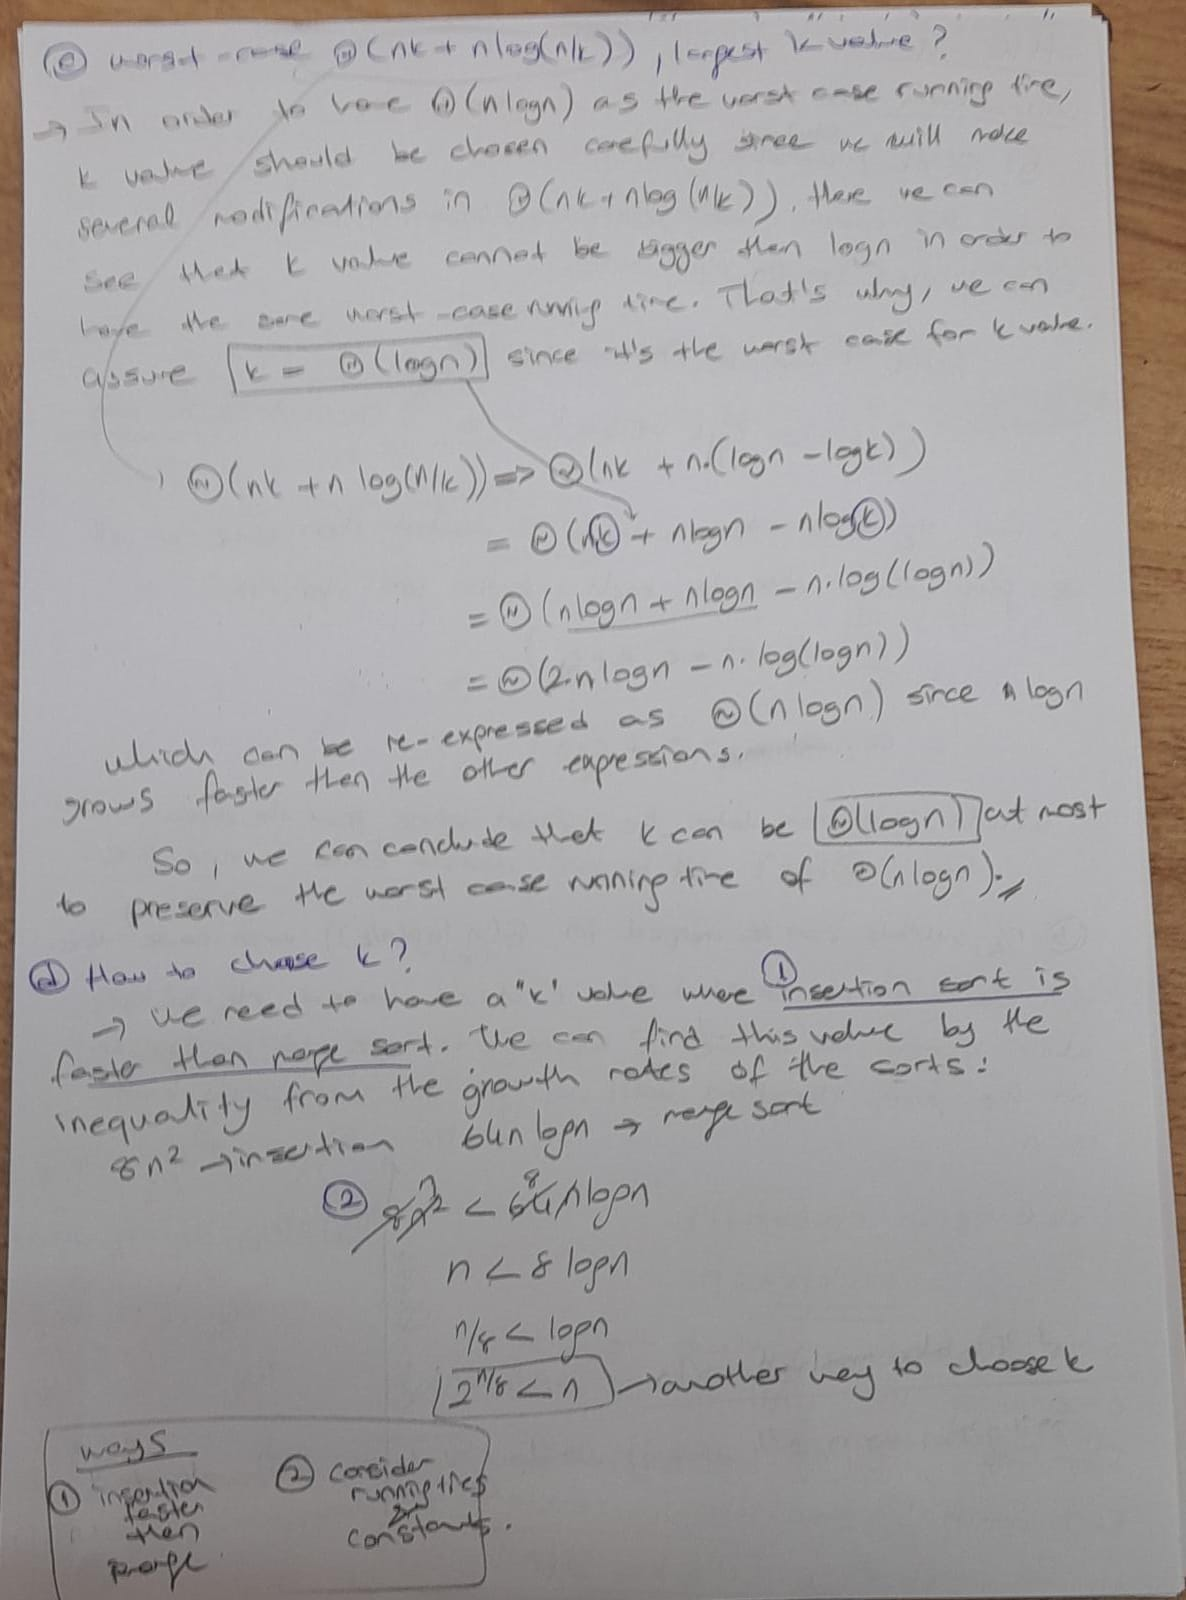 ⓒ worst-case Θ(nk + nlog(n/k)), largest k value?
→ In order to have Θ(nlogn) as the worst case running time,
k value should be chosen carefully since we will make
several modifications in Θ(nk + nlog(n/k)), there we can
see that k value cannot be bigger then logn in order to
have the same worst-case running time. That's why, we can
assure k = Θ(logn) since it's the worst case for k value.
Θ(nk + n log(n/k)) => Θ(nk + n.(logn - logk))
= Θ(nk + nlogn - nlogk)
= Θ(nlogn + nlogn - n.log(logn))
= Θ(2.nlogn - n.log(logn))
which can be re-expressed as Θ(nlogn) since nlogn
grows faster then the other expressions.
So, we can conclude that k can be Θ(logn) at most
to preserve the worst case running time of Θ(nlogn).
ⓓ How to choose k?
①
→ We need to have a "k" value where insertion sort is
faster than merge sort. We can find this value by the
inequality from the growth rates of the sorts:
8n² → insertion 64nlogn → merge sort
② 8n² < 64nlogn
n < 8 logn
n/8 < logn
2^n/8 < n → another way to choose k
ways
① insertion
faster
then
merge
② consider
running times
&
constants.